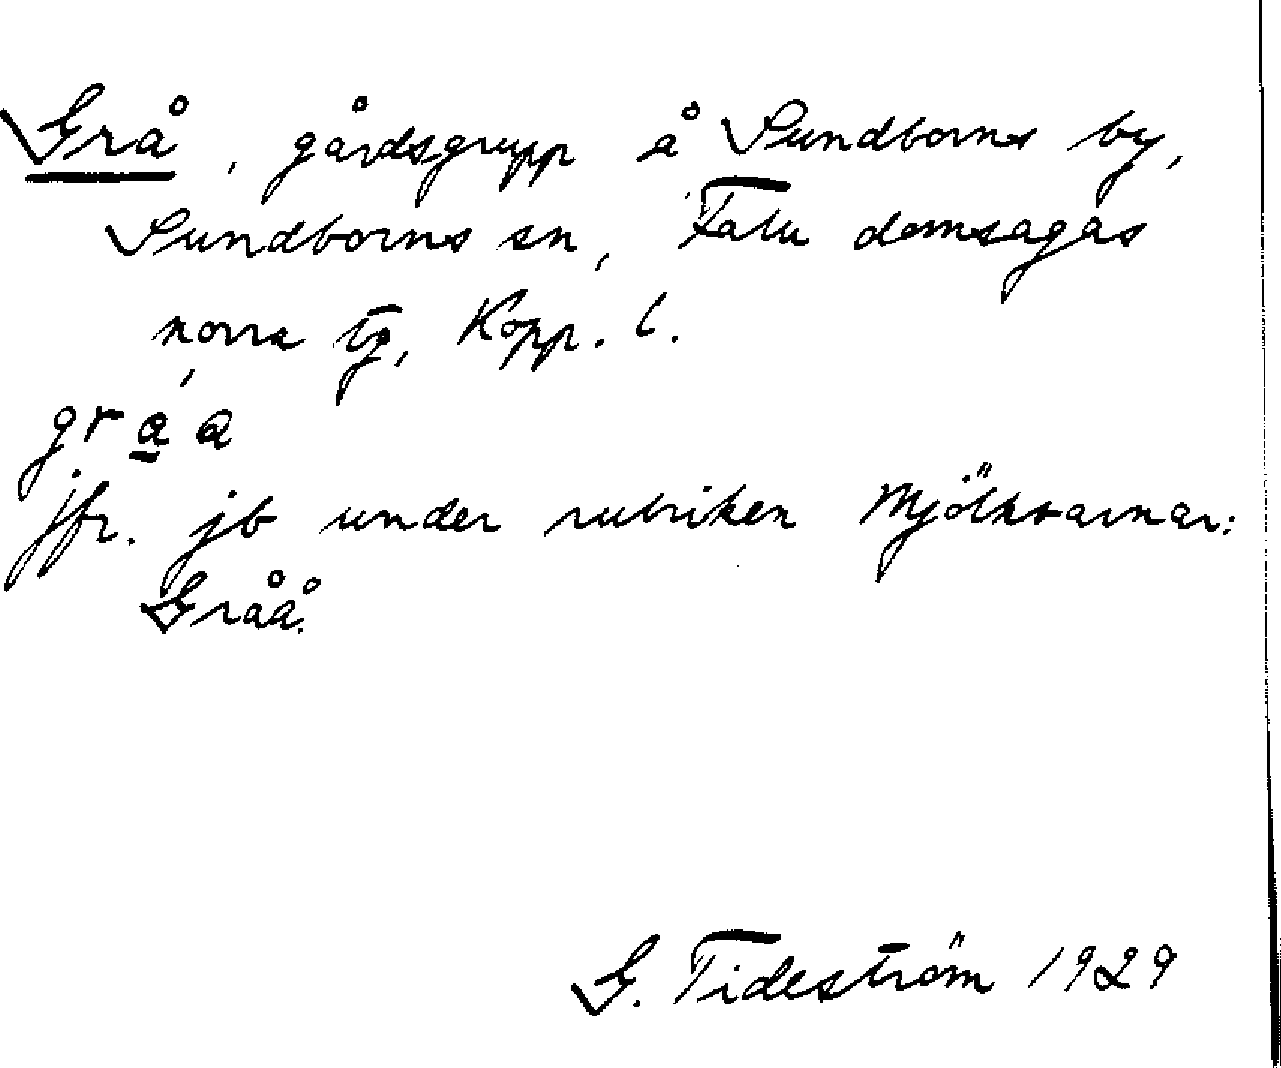 Grå, gårdsgrupp å Sundborns by,
Sundborns sn, Falu domsagas
norra tg, Kopp. l.
gra a
jfr. jb under rubriken Mjölkvarnar:
Gråå.
G. Tideström 1929